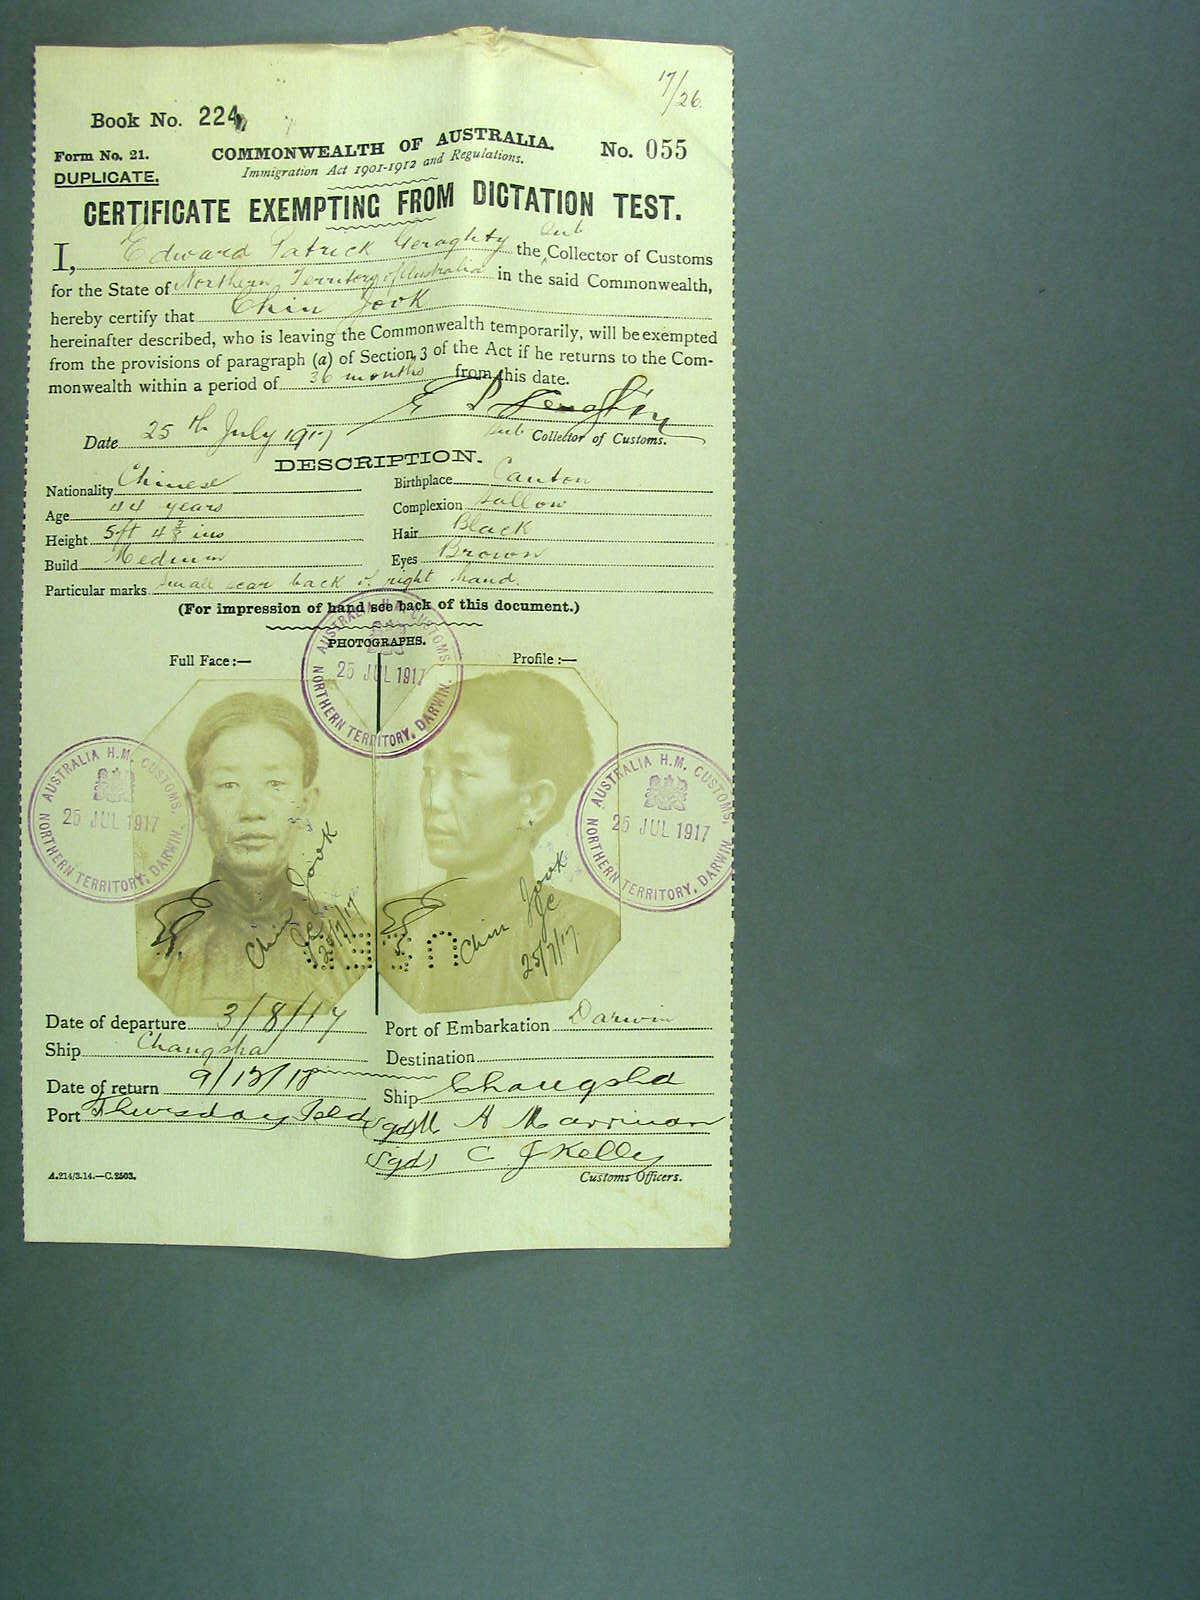 17/26.
Book No. 224
Form No. 21. COMMONWEALTH OF AUSTRALIA. No. 055
DUPLICATE. Immigration Act 1901-1912 and Regulations.
CERTIFICATE EXEMPTING FROM DICTATION TEST.
I, Edward Patrick Geraghty the Sub Collector of Customs
for the State of Northern Territory of Australia in the said Commonwealth,
hereby certify that Chin Jook
hereinafter described, who is leaving the Commonwealth temporarily, will be exempted
from the provisions of paragraph (a) of Section 3 of the Act if he returns to the Com-
monwealth within a period of 36 months from this date.
Date 25th July 1917 Sub Collector of Customs.
DESCRIPTION.
Nationality Chinese Birthplace Canton
Age 44 years Complexion Sallow
Height 5ft 4 3/8 ins Hair Black
Build Medium Eyes Brown
Particular marks Small scar back of right hand.
(For impression of hand see back of this document.)
PHOTOGRAPHS.
Full Face:— Profile:—
AUSTRALIA H.M. CUSTOMS, 25 JUL 1917 NORTHERN TERRITORY, DARWIN.
AUSTRALIA H.M. CUSTOMS, 25 JUL 1917 NORTHERN TERRITORY, DARWIN.
AUSTRALIA H.M. CUSTOMS, 25 JUL 1917 NORTHERN TERRITORY, DARWIN.
Chin Jook
25/7/17
Chin Jook
25/7/17
Date of departure 3/8/17 Port of Embarkation Darwin
Ship Changsha Destination
Date of return 9/12/18 Ship Changsha
Port Thursday Isld (sgd) M A Marriman
(sgd) C J Kelly
A.214/3.14.—C.2503. Customs Officers.